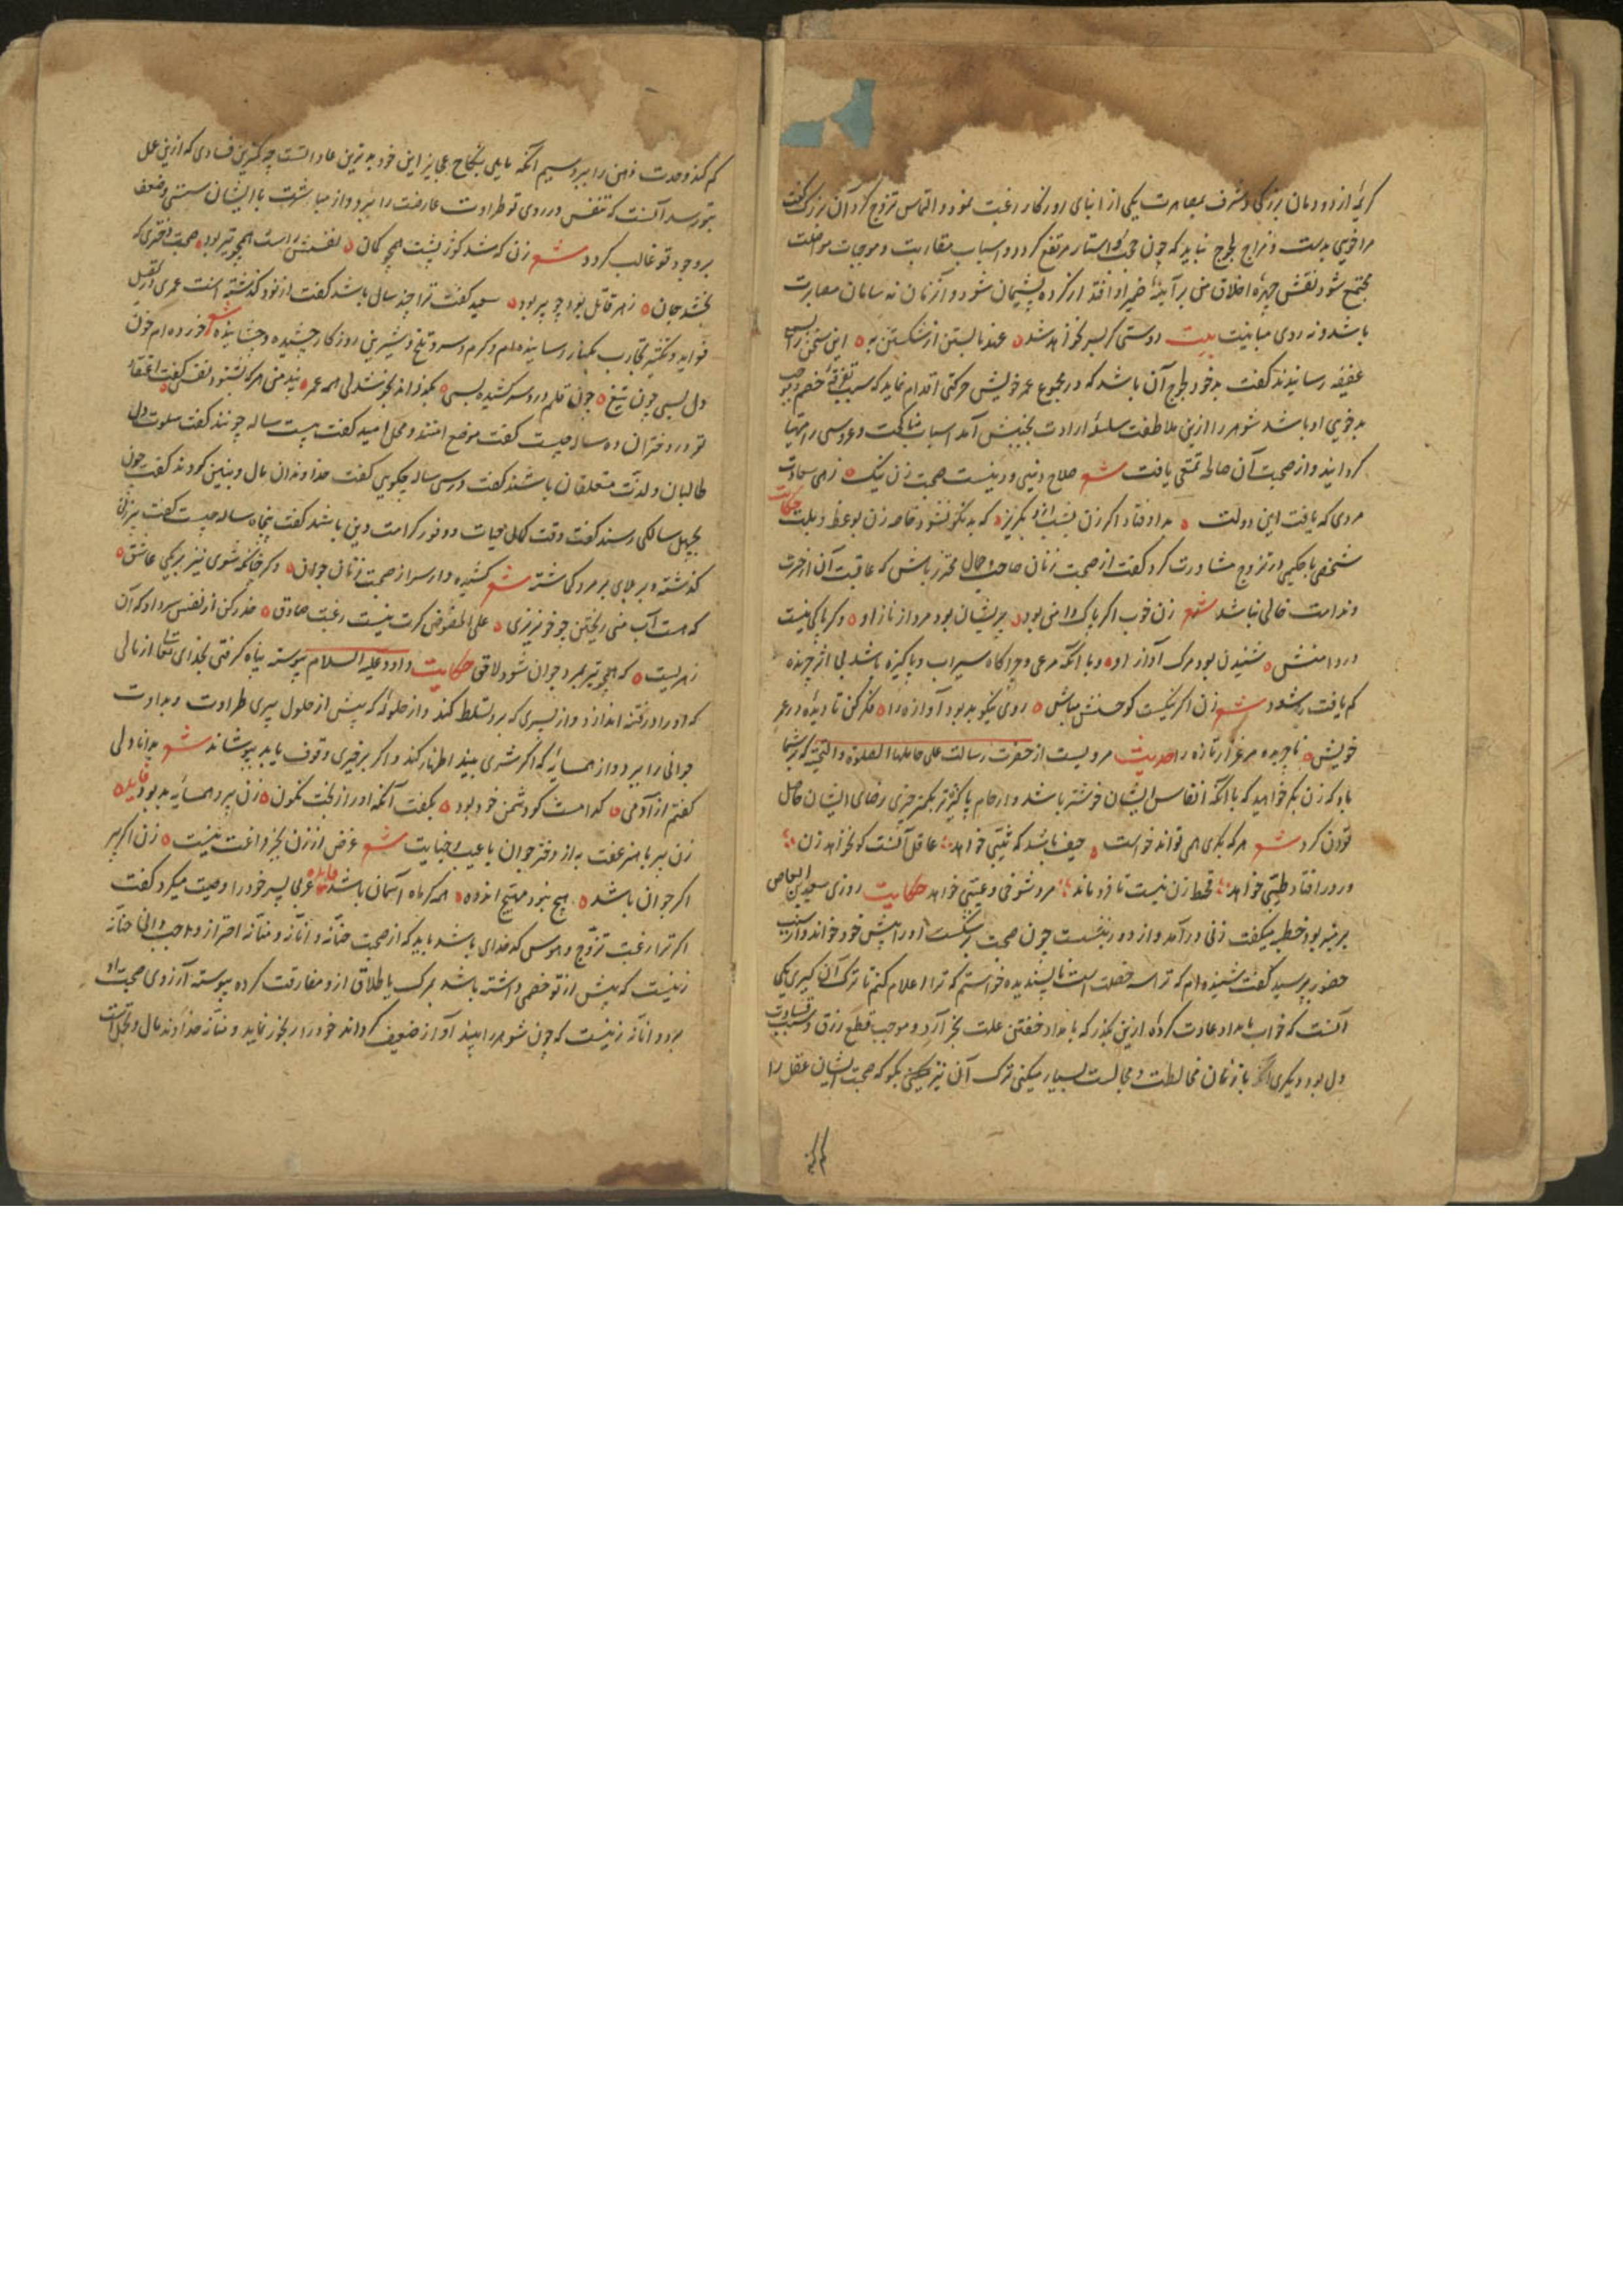 کریمهٔ از دودمان بزرکی و شرف بمصاهرت یکی از ابنای روزکار رغبت نمود و التماس تزوج کرد آن بزرک کفت
مرا خویی بدست و مزاج لجوج نباید که چون حجب و استار مرتفع کردد و اسباب مقاربت و موجبات مواصلت
مجتمع شود نقش چهرهٔ اخلاق من بر آینهٔ ضمیر او افتد از کرده پشیمان شود و آنزمان نه سامان مصابرت
باشد و نه روی مباینت بیت دوستی کر بسر نخواهد شد عهد نابستن از شکستن به این سخن را بسمع
عفیفه رسانیدند کفت بدخو و لجوج آن باشد که در مجموع عمر خویش حرکتی اقدام نماید که سبب تفرقهٔ خصم و موجب
بدخویی او باشد شوهر را ازین ملاطفت سلسلهٔ ارادت بجنبش آمد اسباب مناکحت و عروسی را مهیا
کردانید و از صحبت آن صالحه تمتعی یافت شعر صلاح دنیی و دینست صحبت زن نیک زهی سعادت
مردی که یافت این دولت بد اوفتاد اکر زن بشب ازو بکریز که بد نکو نشود خاصه زن بوعظ و بلت حکایت
شخصی با حکیمی در تزوج مشاورت کرد کفت از صحبت زنان صاحب جمال محترز باش که عاقبت آن از حسرت
و ندامت خالی نباشد شعر زن خوب اکر پاک دامن بود پریشان بود مرد از ناز او وکر پاکی نیست
در دامنش شنیدن بود مرک آواز او و با آنکه مرعی و چراکاه سیراب و پاکیزه باشد بی اثر چرنده
کم یافت شود شعر زن اکر نیکست کو حسنش مباش روی نیکو بد بود آوازه را فکر کن تا دیدهٔ در عمر
خویش ناچریده مرغزار تازه را حدیث مرویست از حضرت رسالت علی حاملها الصلوة والتحیة که بر شما
باد که زن بکر خواهید که با آنکه انفاس ایشان خوشتر باشد و ارحام پاکیزه‌تر بکمتر چیزی رضای ایشان حاصل
توان کرد شعر هر که بکری همی تواند خواست حیف باشد که ثیبی خواهد عاقل آنست کو نخواهد زن
ور در افتاد طیبی خواهد قحط زن نیست تا فرو ماند مرد شوخی و عیبی خواهد حکایت روزی سعید بن العاص
بر منبر بود خطبه میکفت زنی درآمد و از دور بنشست چون صحبت بشکست او را پیش خود خواند و از سبب
حضور پرسید کفت شنیده‌ام که ترا سه خصلت است ناپسندیده خواستم که ترا اعلام کنم تا ترک آن کیری یکی
آنست که خواب بامداد عادت کردهٔ ازین بکذر که بامداد خفتن علت بخر آرد و موجب قطع رزق و سبب قساوت
دل بود و دیکری آنکه با زنان مخالطت و مجالست بسیار میکنی ترک آن نیز میکنی بکو که صحبت ایشان عقل را
کم کند و حدت ذهن را ببرد سیم آنکه مایلی بنکاح عجایز این خود بدترین عاداتست چه کمترین فسادی که ازین علل
بتو رسد آنست که تنفس در روی تو طراوت عارضت را ببرد و از مباشرت با ایشان سستی و ضعف
بر وجود تو غالب کردد شعر زن که شد کوز پشت همچو کمان نفسش راست همچو تیر بود صحبت دختری که
بخشد جان زهر قاتل بود چو پیر بود سعید کفت ترا چند سال باشد کفت از نود کذشته است عمری در نقل
فواید و نتیجه تجارب بکبار رسانیده‌ام و کرم و سرد و تلخ و شیرین روزکار چشیده و چشانیده شعر خورده‌ام خون
دل بسی چون تیغ چون قلم درد سر کشیده بسی بکذراند بخوشدلی همه عمر پند من هر که بشنود نفسی کفت اعتقاد
تو در دختران ده ساله چیست کفت موضع امنند و محل امید کفت بیست ساله چونند کفت سلوت دل
طالبان و لذت متعلقان باشند کفت در سی ساله چکویی کفت خداوندان مال و بنین کردند کفت چون
بچهل سالکی رسند کفت وقت کمال حیات و وفور کرامت و دین باشد کفت پنجاه ساله چیست کفت پیرزنی
کذشته و بر جای پیر مرد کماشته شعر کشیده دار سر از صحبت زنان جوان وکر چنانکه شوی نیز بر یکی عاشق
که هست آب منی ریختن چو خونریزی علی الخصوص کرت نیست رغبت صادق حذر کن از نفس سرد او که آن
زهریست که همچو تیر بمرد جوان شود لاحق حکایت داود علیه السلام پیوسته پناه کرفتی بخدای تعالی از مالی
که او را در فتنه اندازد و از پسری که برو تسلط کند و از حلیلهٔ که پیش از حلول پیری طراوت و بداوت
جوانی را ببرد و از همسایهٔ که اکر شری بیند اظهار کند و اکر بر خیری وقوف یابد بپوشاند شعر بدانا دلی
کفتم از آدمی کدامست کو دشمن خود بود بکفت آنکه او را ز بخت نکون زن پیر و همسایهٔ بد بود فایده
زن پیر با هنر عفت به از دختر جوان با عیب و خیانت شعر غرض از زن بجز فراغت نیست زن اکر پیر
اکر جوان باشد هیچ نبود مهیج اندوه همه کر ماه آسمان باشد فایده عربی پسر خود را وصیت میکرد کفت
اکر ترا رغبت تزوج و هوس کدخدای باشد باید که از صحبت حنانه و انانه و منانه احتراز واجب دانی حنانه
زنیست که پیش از تو خصمی داشته باشد بمرک یا طلاق ازو مفارقت کرده پیوسته آرزوی صحبت او
برد و انانه زنیست که چون شوهر را بیند آواز ضعیف کرداند خود را رنجور نماید و منانه خداوند مال و تجمل است